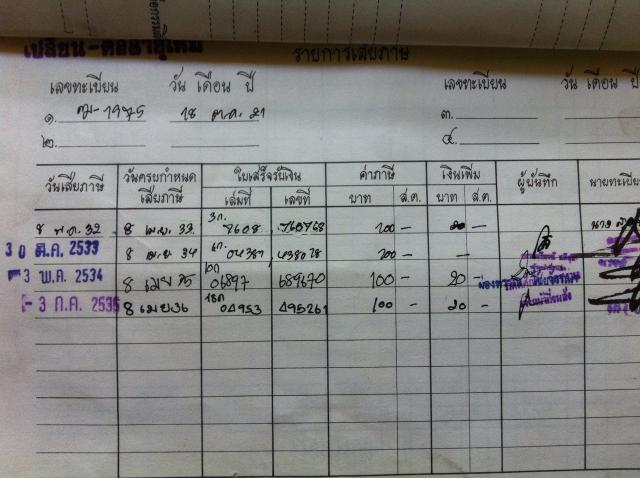 เปลี่ยน-ต่ออายุใหม่
รายการเสียภาษี
เลขทะเบียน วัน เดือน ปี เลขทะเบียน วัน เดือน ปี
๑. 1975 18 ต.ค. 21 ๓.
๒. ๔.
วันเสียภาษี วันครบกำหนดเสียภาษี ใบเสร็จรับเงิน ค่าภาษี เงินเพิ่ม ผู้บันทึก นายทะเบียน
เล่มที่ เลขที่ บาท ส.ต. บาท ส.ต.
8 พ.ค. 32 8 เม.ย. 33 7608 760768 100 – 20 –
30 ต.ค. 2533 8 เม.ย. 34 04387 438078 100 – –
-3 พ.ค. 2534 8 เมย 35 06897 689670 100 – 20 –
-3 ก.ค. 2535 8 เมย 36 04953 495261 100 – 20 –